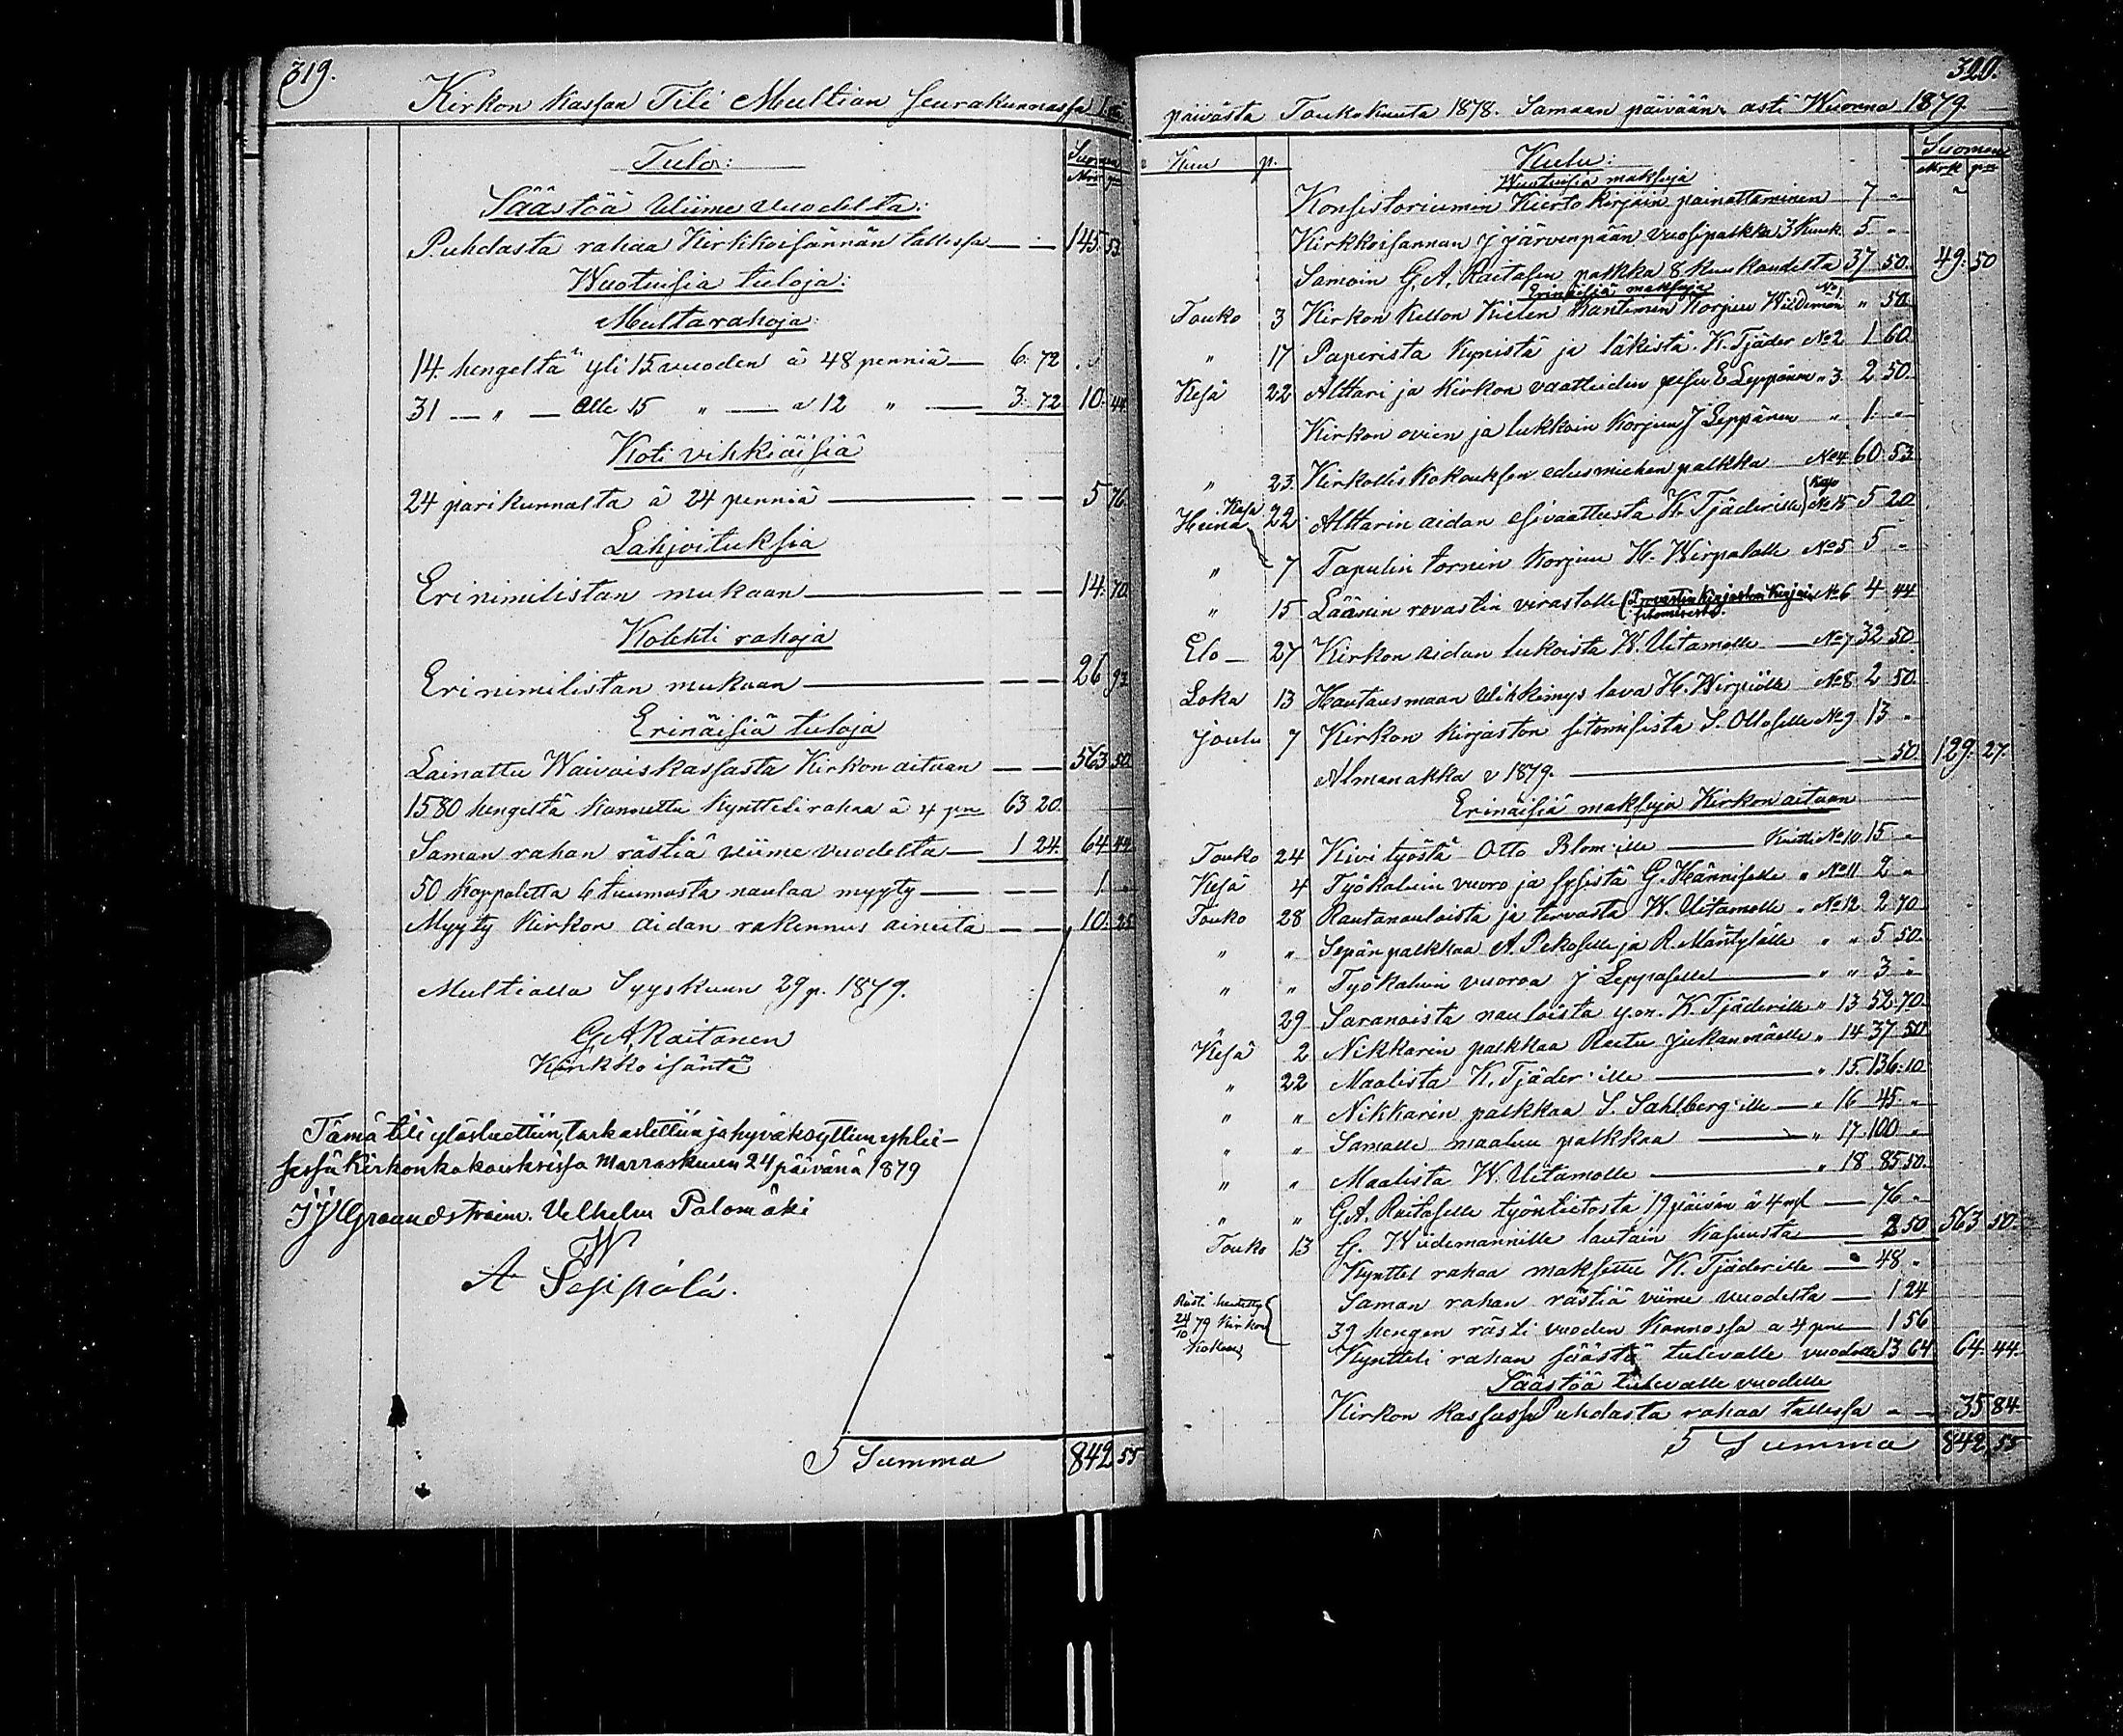 319.
Kirkon Kassan Tili Multian Seurakunnassa 1stä
Tulo:
Suomen
Mrk pni
Säästöä Viime vuodelta:
Puhdasta rahaa Kirkkoisännän tallessa — — 145 53
Wuotuisia tuloja:
Multarahoja:
14 hengeltä yli 15 vuoden á 48 penniä — 6. 72
31 — " — Alle 15 " — a 12 " — 3. 72 10. 44
Koti vihkiäisiä
24 parikunnalta á 24 penniä — — — 5 76
Lahjoituksia
Eri nimilistan mukaan — — — 14. 70
Kolehti rahoja
Eri nimilistan mukaan — — — 26 93
Erinäisiä tuloja
Lainattu Waivaiskassasta Kirkon aitaan — — 563 50
1580 hengeltä Kannettu Kynttelirahaa á 4 pni 63 20.
Saman rahan rästiä viime vuodelta — 1 24. 64 44
50 Kappaletta 6 tuumasta naulaa myyty — — — 1 "
Myyty Kirkon aidan rakennus aineita — — 10. 25
Multialla Syyskuun 29 p. 1879.
G.A. Raitanen
Kirkkoisäntä
Tämä tili ylösluettiin, tarkastettiin ja hyväksyttiin yhtei-
sessä Kirkonkokouksessa Marraskuun 24 päivänä 1879
J J Graandstroem. Velhelm Palomäki
W
A Seppälä.
S Summa 842 55
320.
päivästä Toukokuuta 1878. Samaan päivään asti Wuonna 1879.
Kuu p. Kulu: Suomen
Mrk pni
Wuotuisia maksuja
Konsistoriumin Kierto kirjain painattaminen 7 "
Kirkkoisännän J Järvenpään vuosipalkka 3 Kuuk. 5 "
Samoin G. A. Raitasen palkka 8 kuukaudelta 37 50. 49. 50
Erinäisiä maksuja
Touko 3 Kirkon Kellon Kielen Kantimen Korjuu Wiideman No 1 " 50
" 17 Paperista Kynistä ja läkistä. K. Tjäder No 2 1 60
Kesä 22 Alttari ja Kirkon vaatteiden pesu E Leppänen " 3. 2 50.
Kirkon ovien ja lukkoin Korjuu J Leppänen " 1. "
" 23. Kirkollis Kokouksen edusmiehen palkka No 4 60 53
Kesä
Heinä 22 Alttarin aidan esivaattesta K. Tjäderille No 15 5 20
" 7 Tapulin tornin Korjuu H. Wirpalalle No 5 5 "
" 15 Läänin rovastin virastolle (Rovastin Kirjaston Kirjain No 6 4 44
sitomisesta
Elo — 27 Kirkon aidan lukoista W. Uitamolle — No 7 32 50
Loka 13 Hautausmaan Vihkimys lava H. Wirpiölle No 8 2 50.
Joulu 7 Kirkon Kirjaston sitomisista S. Ottoselle No 9 13 "
Almanakka v 1879. — 50 129. 27.
Erinäisiä maksuja Kirkon aitaan
Touko 24 Kivi työstä Otto Blom:ille — Kuitti No 10 15 "
Kesä 4 Työkaluin vuoro ja sysistä G. Hänniselle " No 11 2 "
Touko 28 Rautanauloista ja tervasta W. Uitamolle " No 12 2 70
" " Sepän palkkaa A. Pekoselle ja R. Mäntylälle " " 5 50.
" " Työkaluin vuoroa J Leppäselle — " " 3 "
" 29 Saranoista nauloista y.m. K. Tjäderille " 13 52. 70.
Kesä 2 Nikkarin palkkaa Ruttu Jukanmäelle " 14 37 50
" 22 Maalista K. Tjäder:ille — " 15. 136. 10
" " Nikkarin palkkaa S. Sahlberg:ille — " 16 45. "
" " Samalle maaluu palkkaa — " 17 100 "
" " Maalista W. Uitamolle — " 18 85 50.
" " G.A. Raitaselle työntietosta 19 päivän á 4 m — 76 "
Touko 13 G. Wiidemannille lautain Kapuusta — 2 50 563 50.
Kynttel rahaa maksettu K. Tjäderille — 48 "
Saman rahan rästiä viime vuodelta — 1 24
24/10 79 Kirkon
Kokous
39 hengen rästi vuoden Kannossa a 4 pni — 1 56
Kyntteli rahan säästö tulevalle vuodelle 13 64 64. 44.
Säästöä tulevalle vuodelle
Kirkon kassassa Puhdasta rahaa tallessa — — 35 84
S Summa 842 55